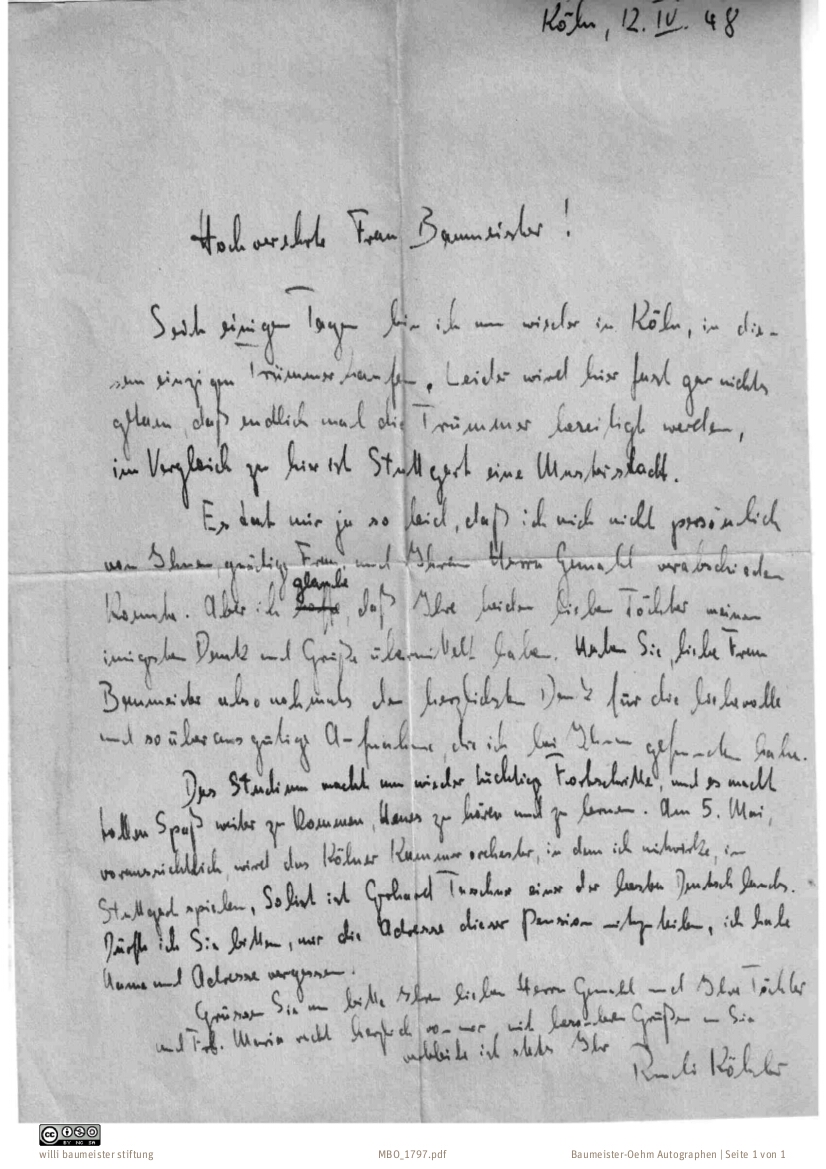 Köln, 12. IV. 48
Hochverehrte Frau Baumeister!
Seit einigen Tagen bin ich nun wieder in Köln, in die-
sem einzigen Trümmerhaufen. Leider wird hier fast gar nichts
getan, daß endlich mal die Trümmer beseitigt werden,
im Vergleich zu hier ist Stuttgart eine Musterstadt.
Es tut mir ja so leid, daß ich mich nicht persönlich
von Ihnen, gnädige Frau, und Ihrem Herrn Gemahl verabschieden
glaube
konnte. Aber ich hoffe, daß Ihre beiden lieben Töchter meinen
innigsten Dank und Grüße übermittelt haben. Haben Sie, liebe Frau
Baumeister also nochmals den herzlichsten Dank für die liebevolle
und so überaus gütige Aufnahme, die ich bei Ihnen gefunden habe.
Das Studium macht nun wieder tüchtig Fortschritte, und es macht
tollen Spaß weiter zu kommen, Neues zu hören und zu lernen. Am 5. Mai,
voraussichtlich, wird das Kölner Kammerorchester, in dem ich mitwirke, in
Stuttgart spielen, Solist ist Gerhard Taschner einer der besten Deutschlands.
Dürfte ich Sie bitten, mir die Adresse dieser Pension mitzuteilen, ich habe
Name und Adresse vergessen.
Grüssen Sie nun bitte Ihren lieben Herrn Gemahl und Ihre Töchter
und Frl. Maria recht herzlich von mir, mit besonderen Grüßen an Sie
verbleibe ich stets Ihr
Rudi Köhler
willi baumeister stiftung
MBO_1797.pdf
Baumeister-Oehm Autographen | Seite 1 von 1